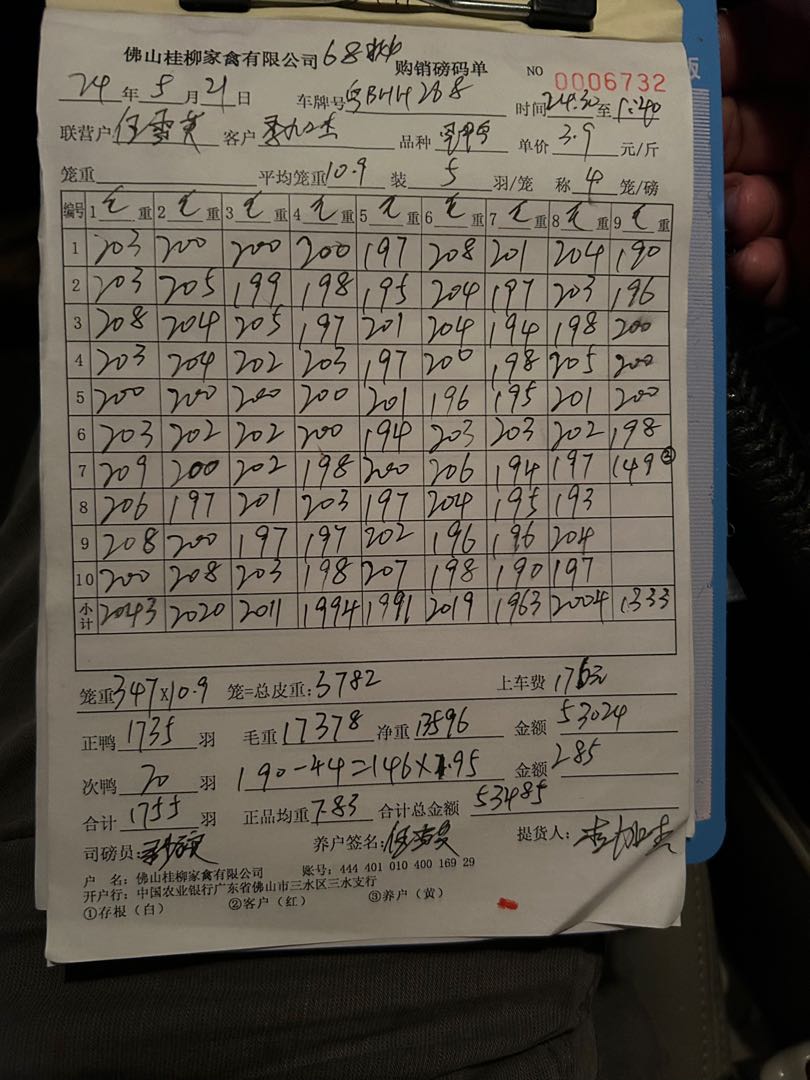 佛山桂柳家禽有限公司 68 购销磅码单 NO 0006732
24 年 5 月 21 日 车牌号 粤BHH268 时间 24:30 至 1:40
联营户 伍雪 客户 品种 单价 3.9 元/斤
笼重 平均笼重 10.9 装 5 羽/笼 称 4 笼/磅
编号 1 毛 重 2 毛 重 3 毛 重 4 毛 重 5 毛 重 6 毛 重 7 毛 重 8 毛 重 9 毛 重
1 203 200 200 200 197 208 201 204 190
2 203 205 199 198 195 204 197 203 196
3 208 204 205 197 201 204 194 198 200
4 203 204 202 203 197 200 198 205 200
5 200 200 200 200 201 196 195 201 200
6 203 202 202 200 194 203 203 202 198
7 209 200 202 198 200 206 194 197 149③
8 206 197 201 203 197 204 195 193
9 208 200 197 197 202 196 196 204
10 200 208 203 198 207 198 190 197
小计 2043 2020 2011 1994 1991 2019 1963 2004 1333
笼重 347×10.9 笼=总皮重: 3782 上车费 176元
正鸭 1735 羽 毛重 17378 净重 13596 金额 53024
次鸭 20 羽 190-44=146×1.95 金额 285
合计 1755 羽 正品均重 7.83 合计总金额 53485
司磅员: 养户签名: 提货人:
户 名: 佛山桂柳家禽有限公司 账号: 444 401 010 400 169 29
开户行: 中国农业银行广东省佛山市三水区三水支行
①存根(白) ②客户(红) ③养户(黄)